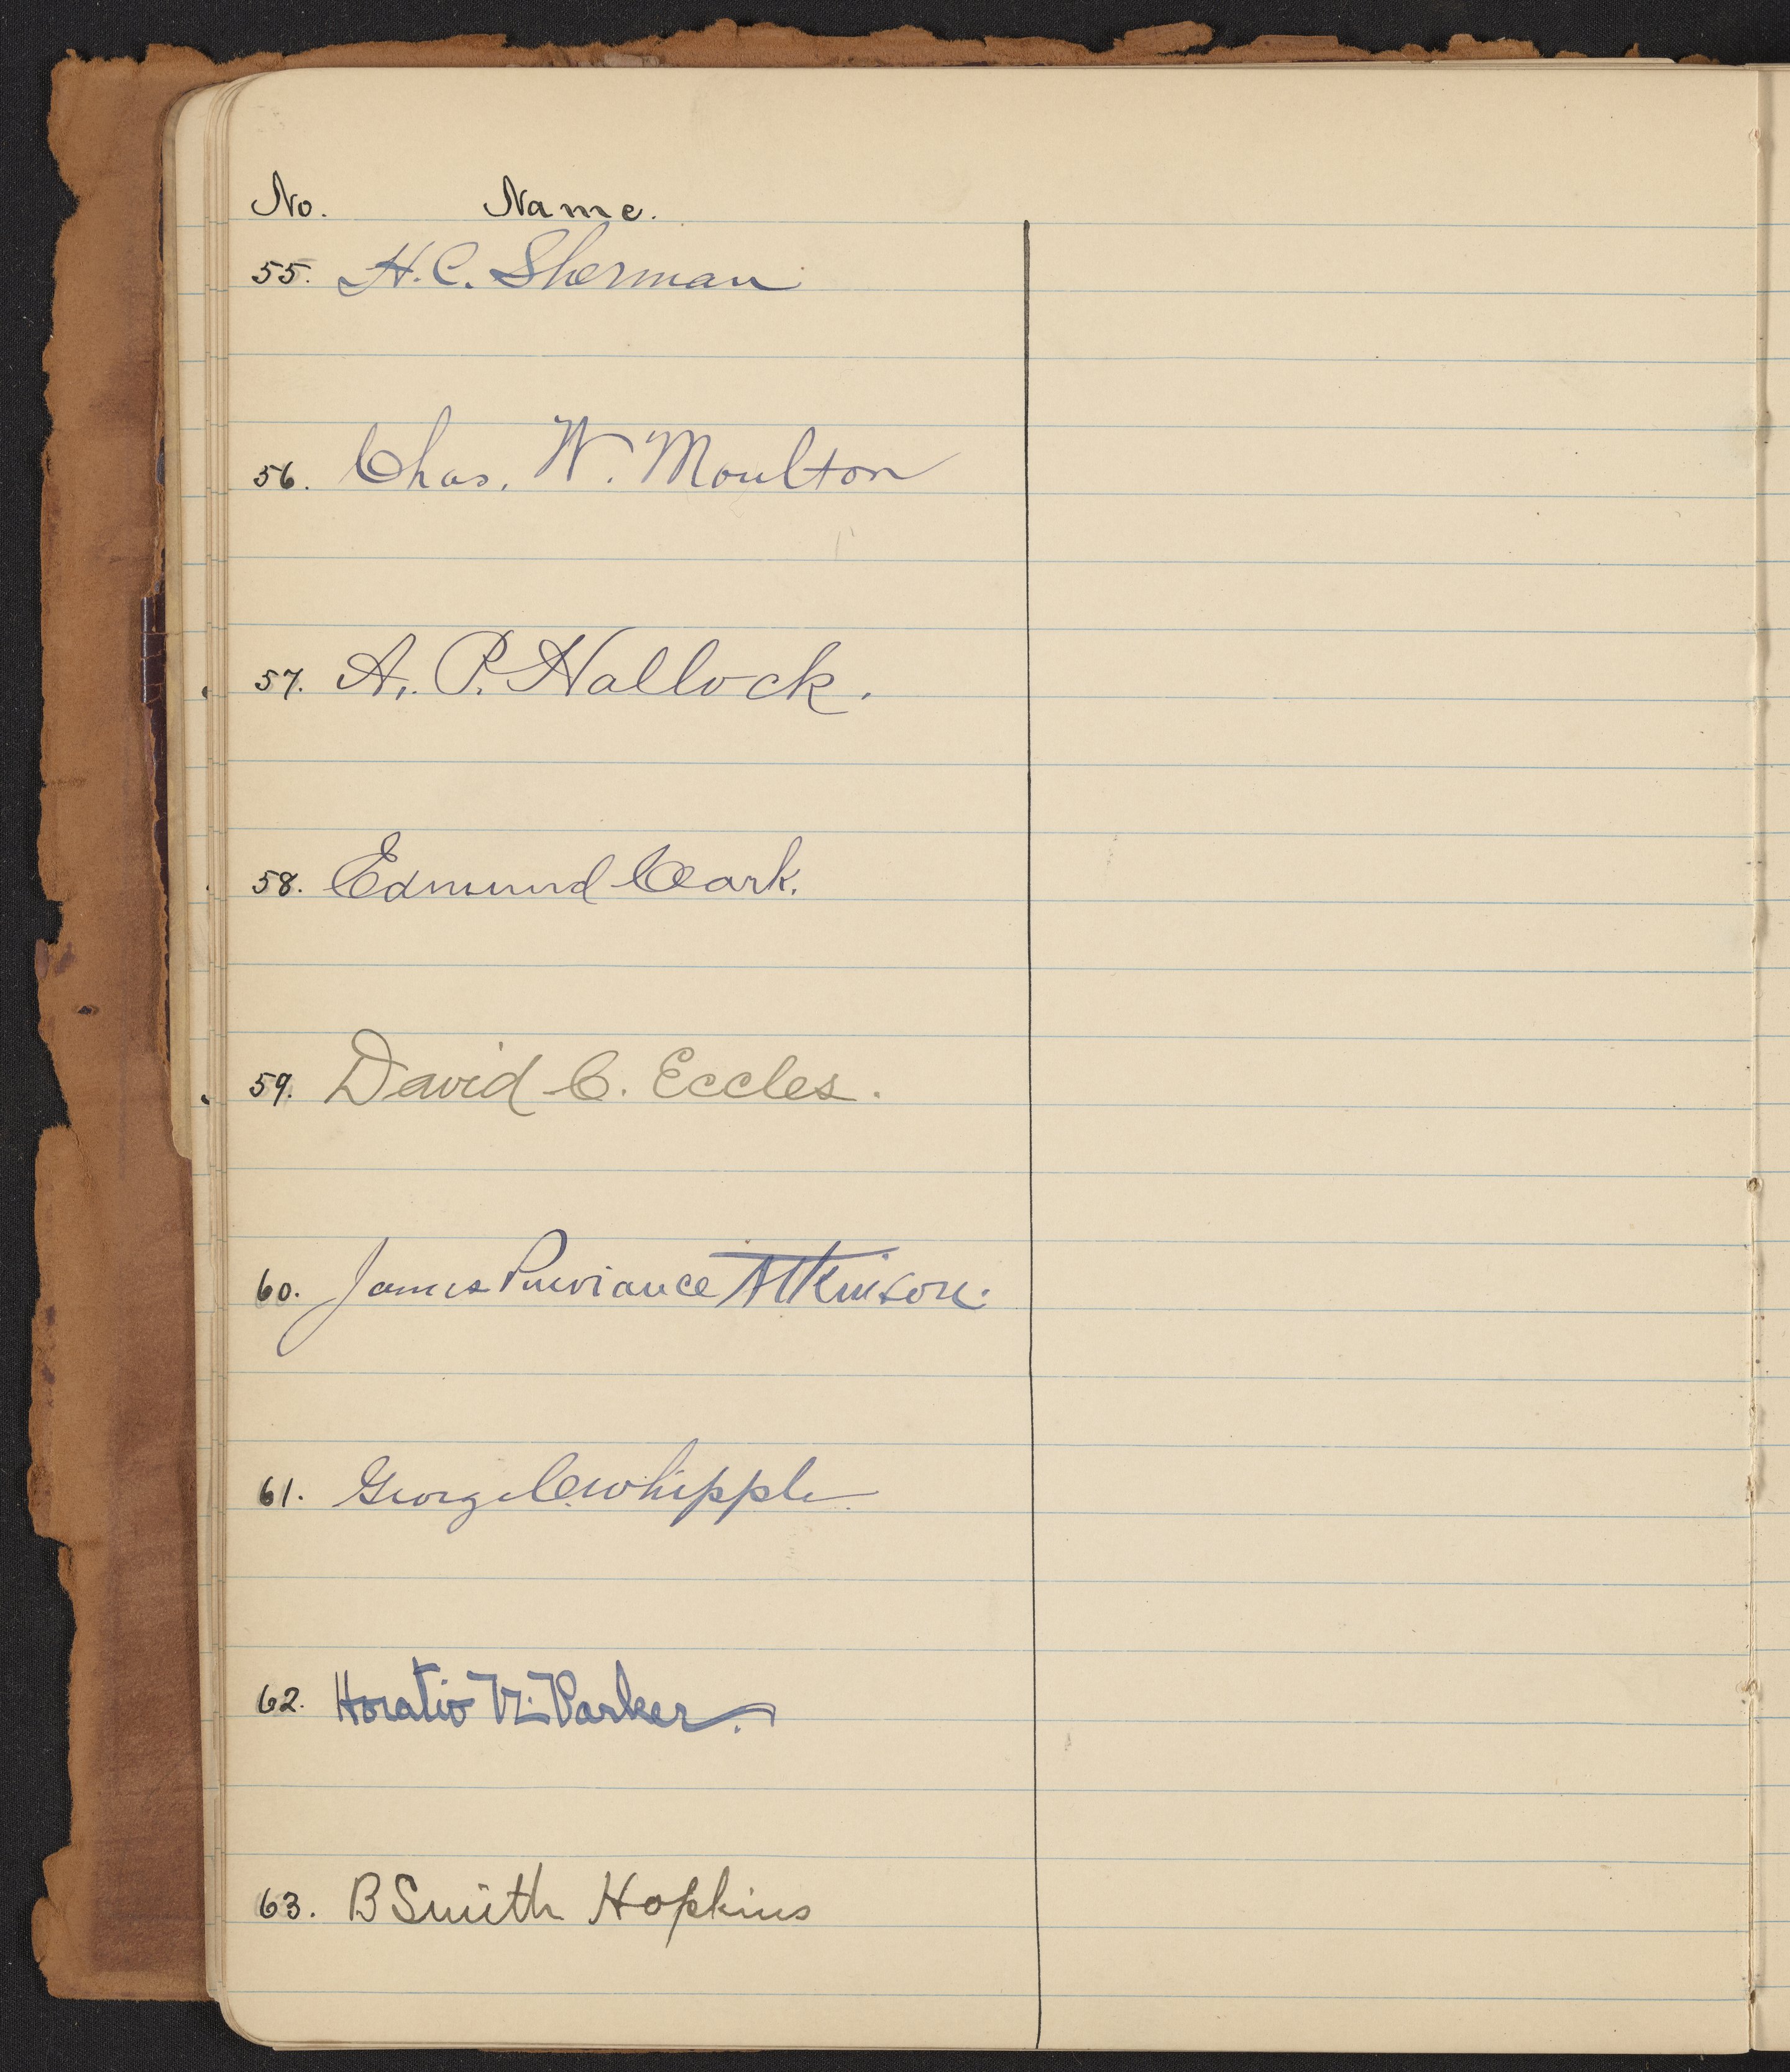 No. Name.
55. H. C. Sherman
56. Chas. W. Moulton
57. A. P. Hallock.
58. Edmund Clark.
59. David C. Eccles.
60. James Purviance Atkinson.
61. George C. Whipple
62. Horatio N. Parker.
63. B Smith Hopkins